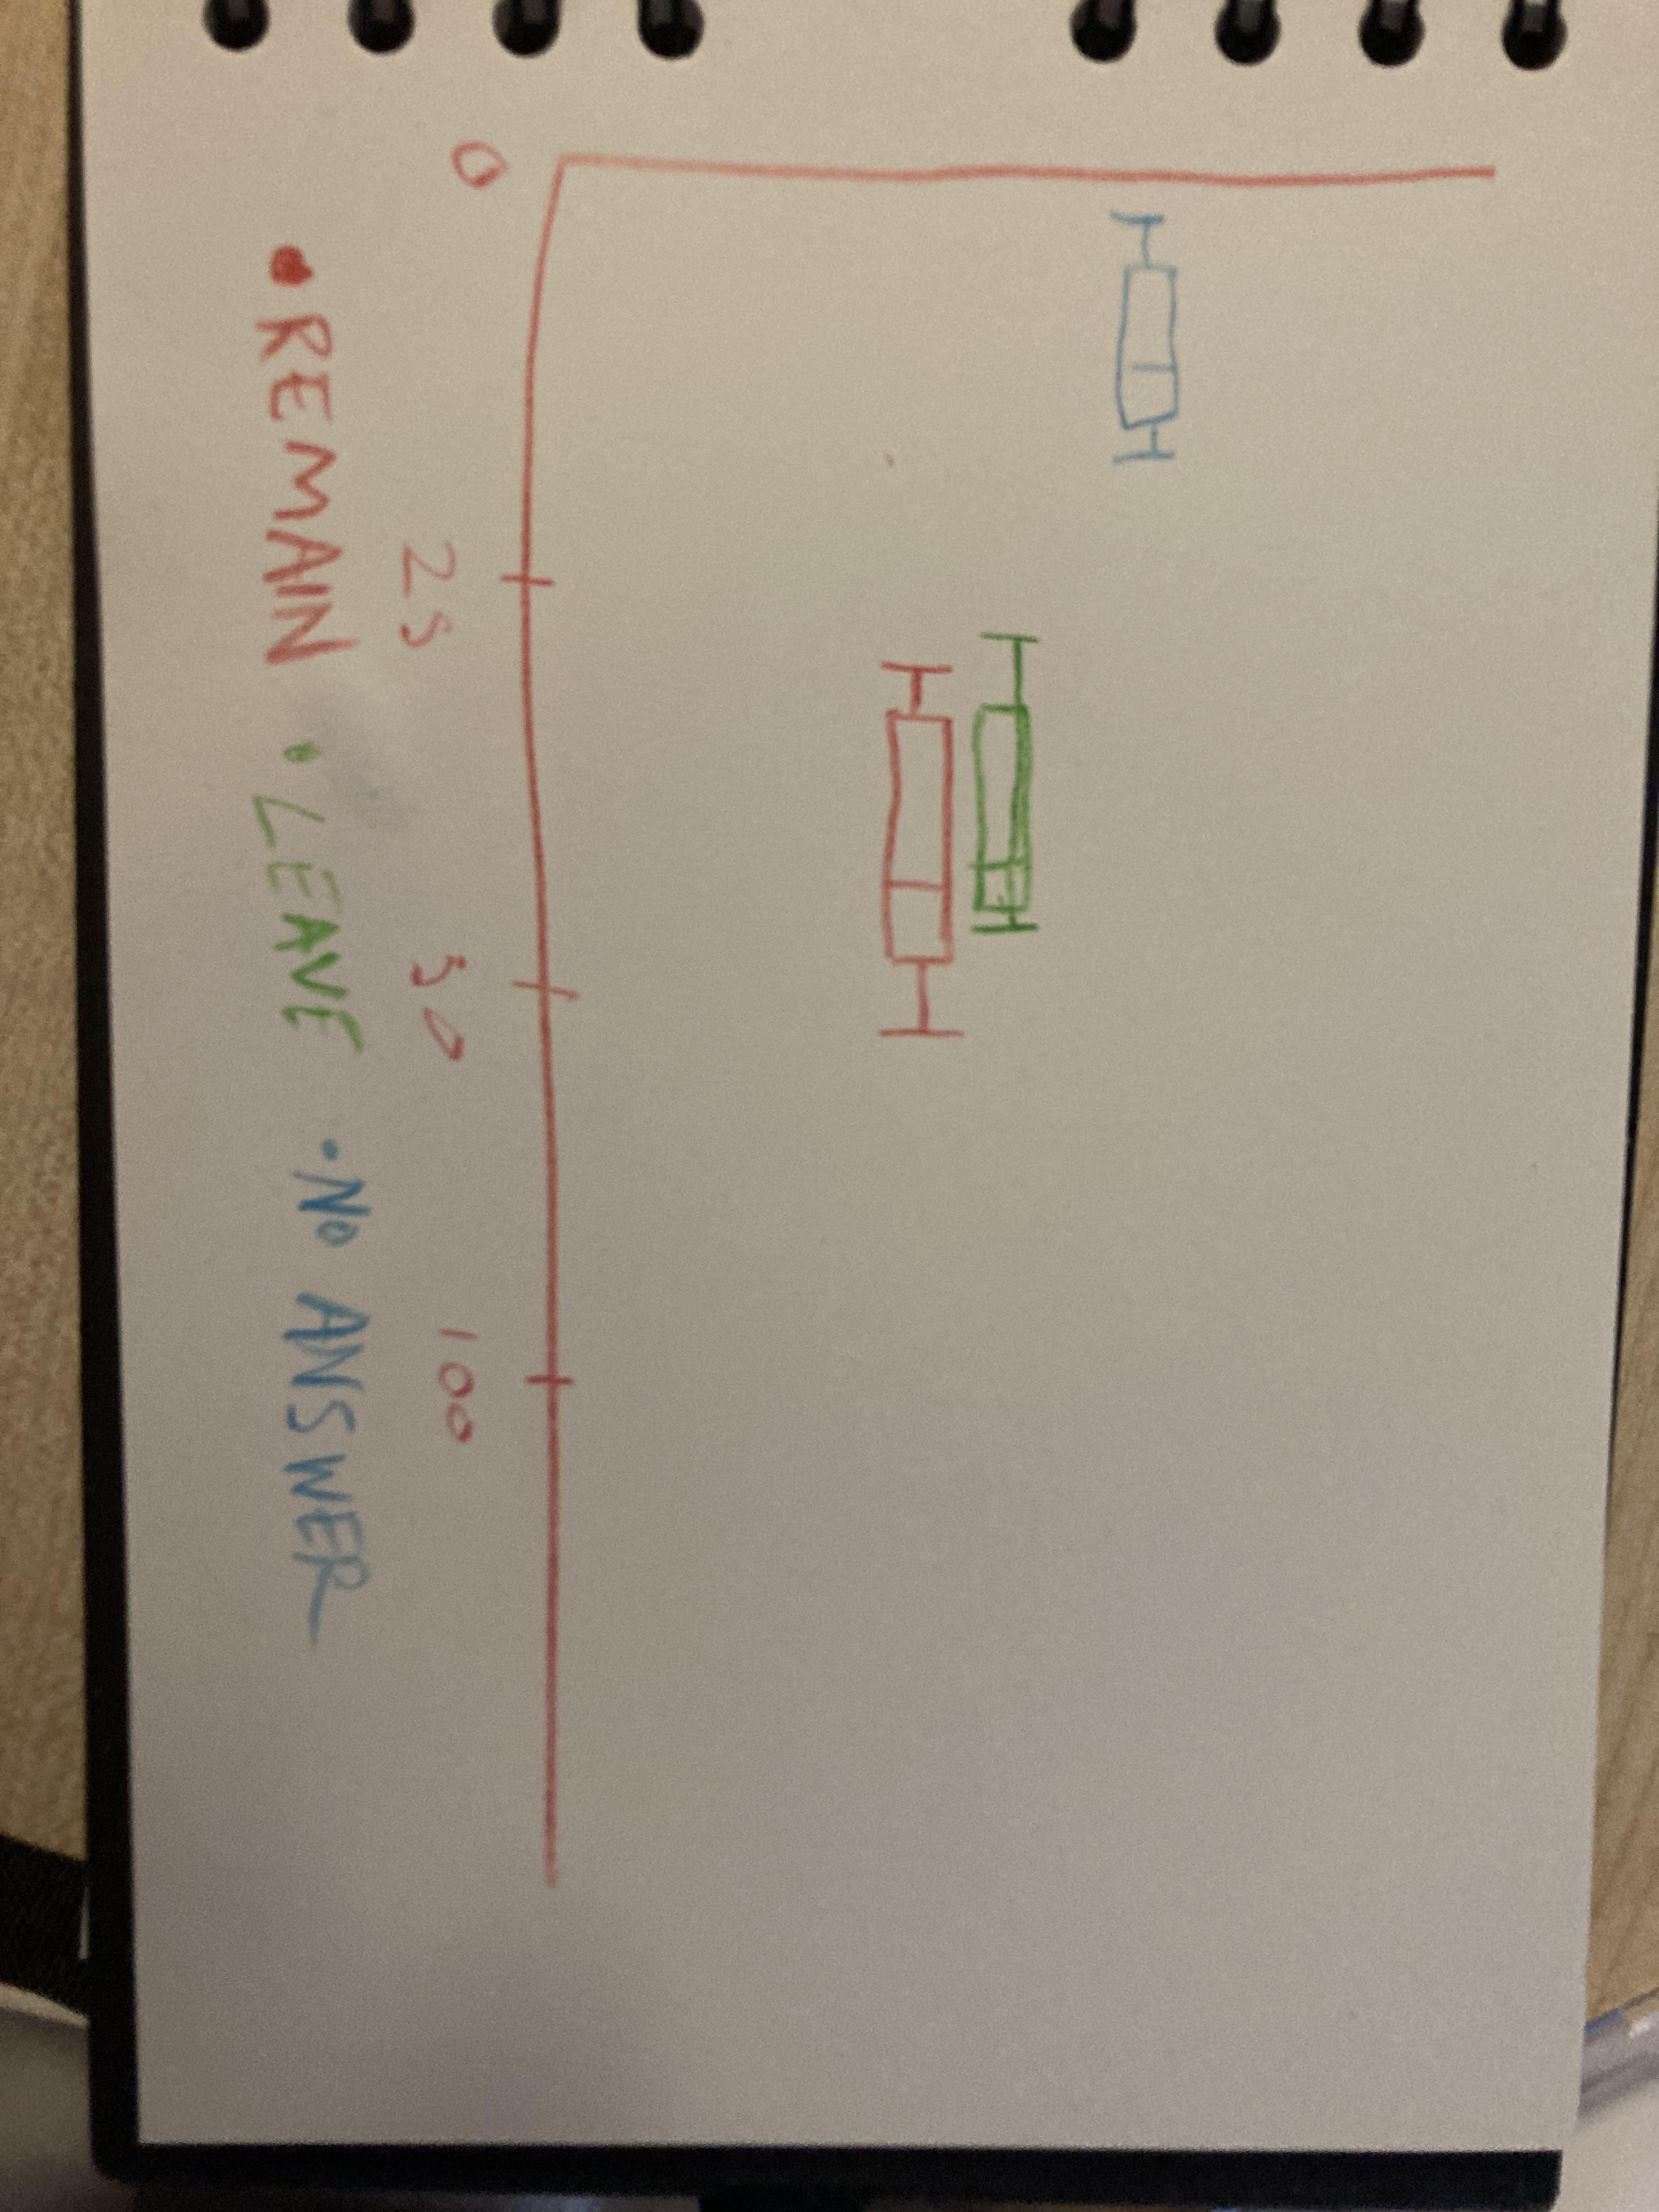 0 25 50 100
• REMAIN • LEAVE • NO ANSWER